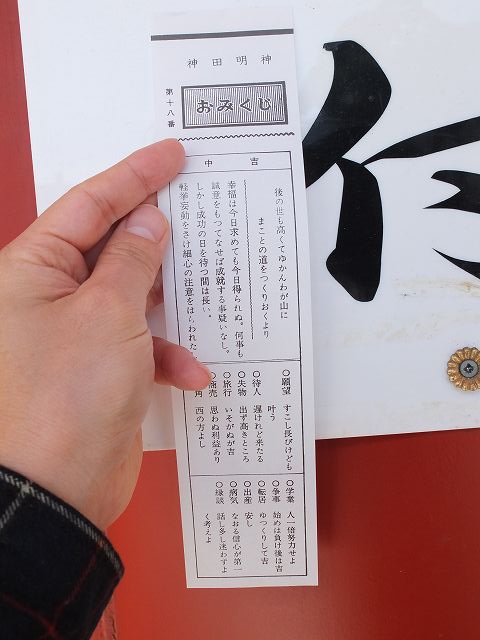 神田明神
第十八番
おみくじ
中吉
後の世も高くてゆかんわが山に
まことの道をつくりおくより
幸福は今日求めても今日得られぬ。何事も
誠意をもつてなせば成就する事疑いなし。
しかし成功の日を待つ間は長い。
軽挙妄動をさけ細心の注意をはらわれた
○願望 すこし長びけども
叶う
○待人 遅けれど来たる
○失物 出ず高きところ
○旅行 いそがぬが吉
○商売 思わぬ利益あり
角 西の方よし
○学業 人一倍努力せよ
○争事 始めは負け後は吉
○転居 ゆつくりして吉
○出産 安し
○病気 なおる信心が第一
○縁談 話し多し迷わずよ
く考えよ